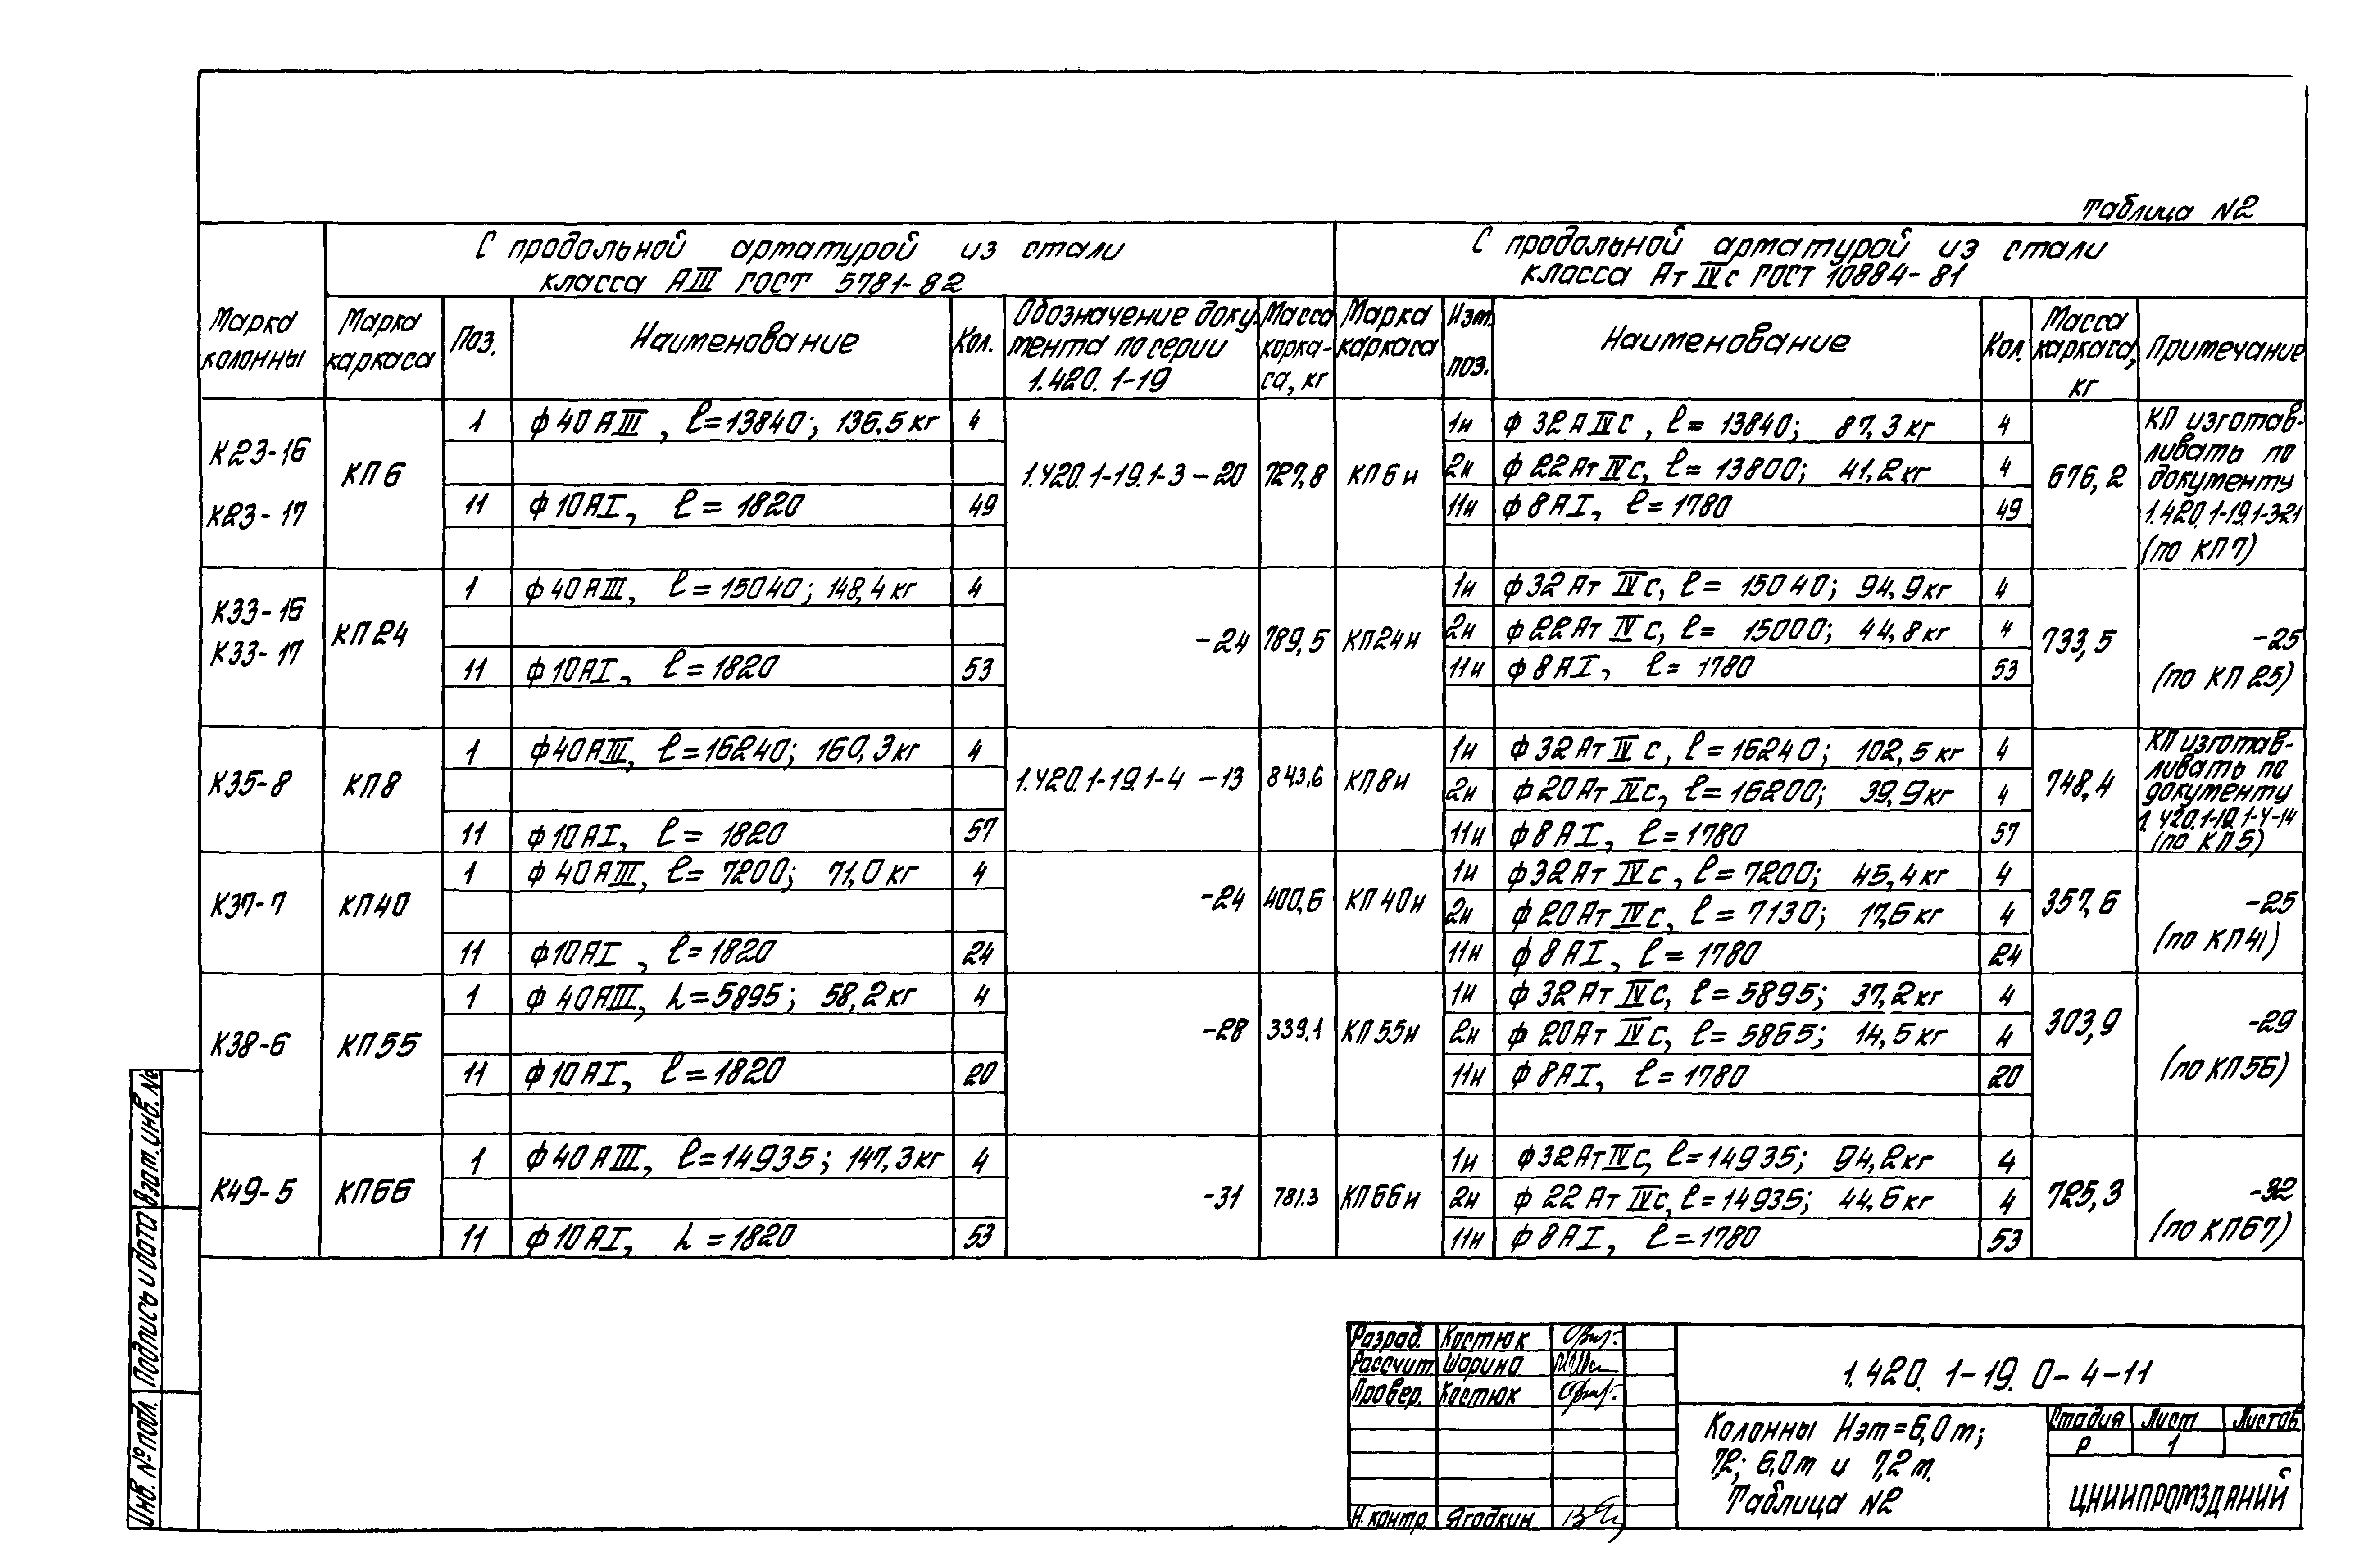 Таблица N2
С продольной арматурой из стали
класса АIII ГОСТ 5781-82
С продольной арматурой из стали
класса Ат IVс ГОСТ 10884-81
Марка
колонны
Марка
каркаса
Поз.
Наименование
Кол.
Обозначение доку-
мента по серии
1.420.1-19
Масса
карка-
са, кг
Марка
каркаса
Изм.
поз.
Наименование
Кол.
Масса
каркаса,
кг
Примечание
К23-16
К23-17
КП6
1 ф40АIII, ℓ=13840; 136,5кг 4
11 ф10АI, ℓ=1820 49
1.420.1-19.1-3-20
727,8
КП6и
1и ф32АIVС, ℓ=13840; 87,3кг 4
2и ф22АтIVс, ℓ=13800; 41,2кг 4
11и ф8АI, ℓ=1780 49
676,2
КП изготав-
ливать по
документу
1.420.1-19.1-3-21
(по КП7)
К33-16
К33-17
КП24
1 ф40АIII, ℓ=15040; 148,4кг 4
11 ф10АI, ℓ=1820 53
-24
789,5
КП24и
1и ф32Ат IVс, ℓ=15040; 94,9кг 4
2и ф22Ат IVс, ℓ=15000; 44,8кг 4
11и ф8АI, ℓ=1780 53
733,5
-25
(по КП25)
К35-8
КП8
1 ф40АIII, ℓ=16240; 160,3кг 4
11 ф10АI, ℓ=1820 57
1.420.1-19.1-4-13
843,6
КП8и
1и ф32Ат IVс, ℓ=16240; 102,5кг 4
2и ф20Ат IVс, ℓ=16200; 39,9кг 4
11и ф8АI, ℓ=1780 57
748,4
КП изготав-
ливать по
документу
1.420.1-19.1-4-14
(по КП5)
К37-7
КП40
1 ф40АIII, ℓ=7200; 71,0кг 4
11 ф10АI, ℓ=1820 24
-24
400,6
КП40и
1и ф32Ат IVс, ℓ=7200; 45,4кг 4
2и ф20Ат IVс, ℓ=7130; 17,6кг 4
11и ф8АI, ℓ=1780 24
357,6
-25
(по КП41)
К38-6
КП55
1 ф40АIII, L=5895; 58,2кг 4
11 ф10АI, ℓ=1820 20
-28
339,1
КП55и
1и ф32Ат IVс, ℓ=5895; 37,2кг 4
2и ф20Ат IVс, ℓ=5865; 14,5кг 4
11и ф8АI, ℓ=1780 20
303,9
-29
(по КП56)
К49-5
КП66
1 ф40АIII, ℓ=14935; 147,3кг 4
11 ф10АI, L=1820 53
-31
781.3
КП66и
1и ф32АтIVс, ℓ=14935; 94,2кг 4
2и ф22Ат IVс, ℓ=14935; 44,6кг 4
11и ф8АI, ℓ=1780 53
725,3
-32
(по КП67)
Инв. № подл.
Подпись и дата
Взам. инв. №
Разраб. Костюк
Рассчит. Шарина
Провер. Костюк
Н. контр. Ягодкин
1.420.1-19.0-4-11
Колонны Нэт=6,0м;
7,2; 6,0м и 7,2м.
Таблица N2
Стадия Лист Листов
Р 1
ЦНИИПРОМЗДАНИЙ